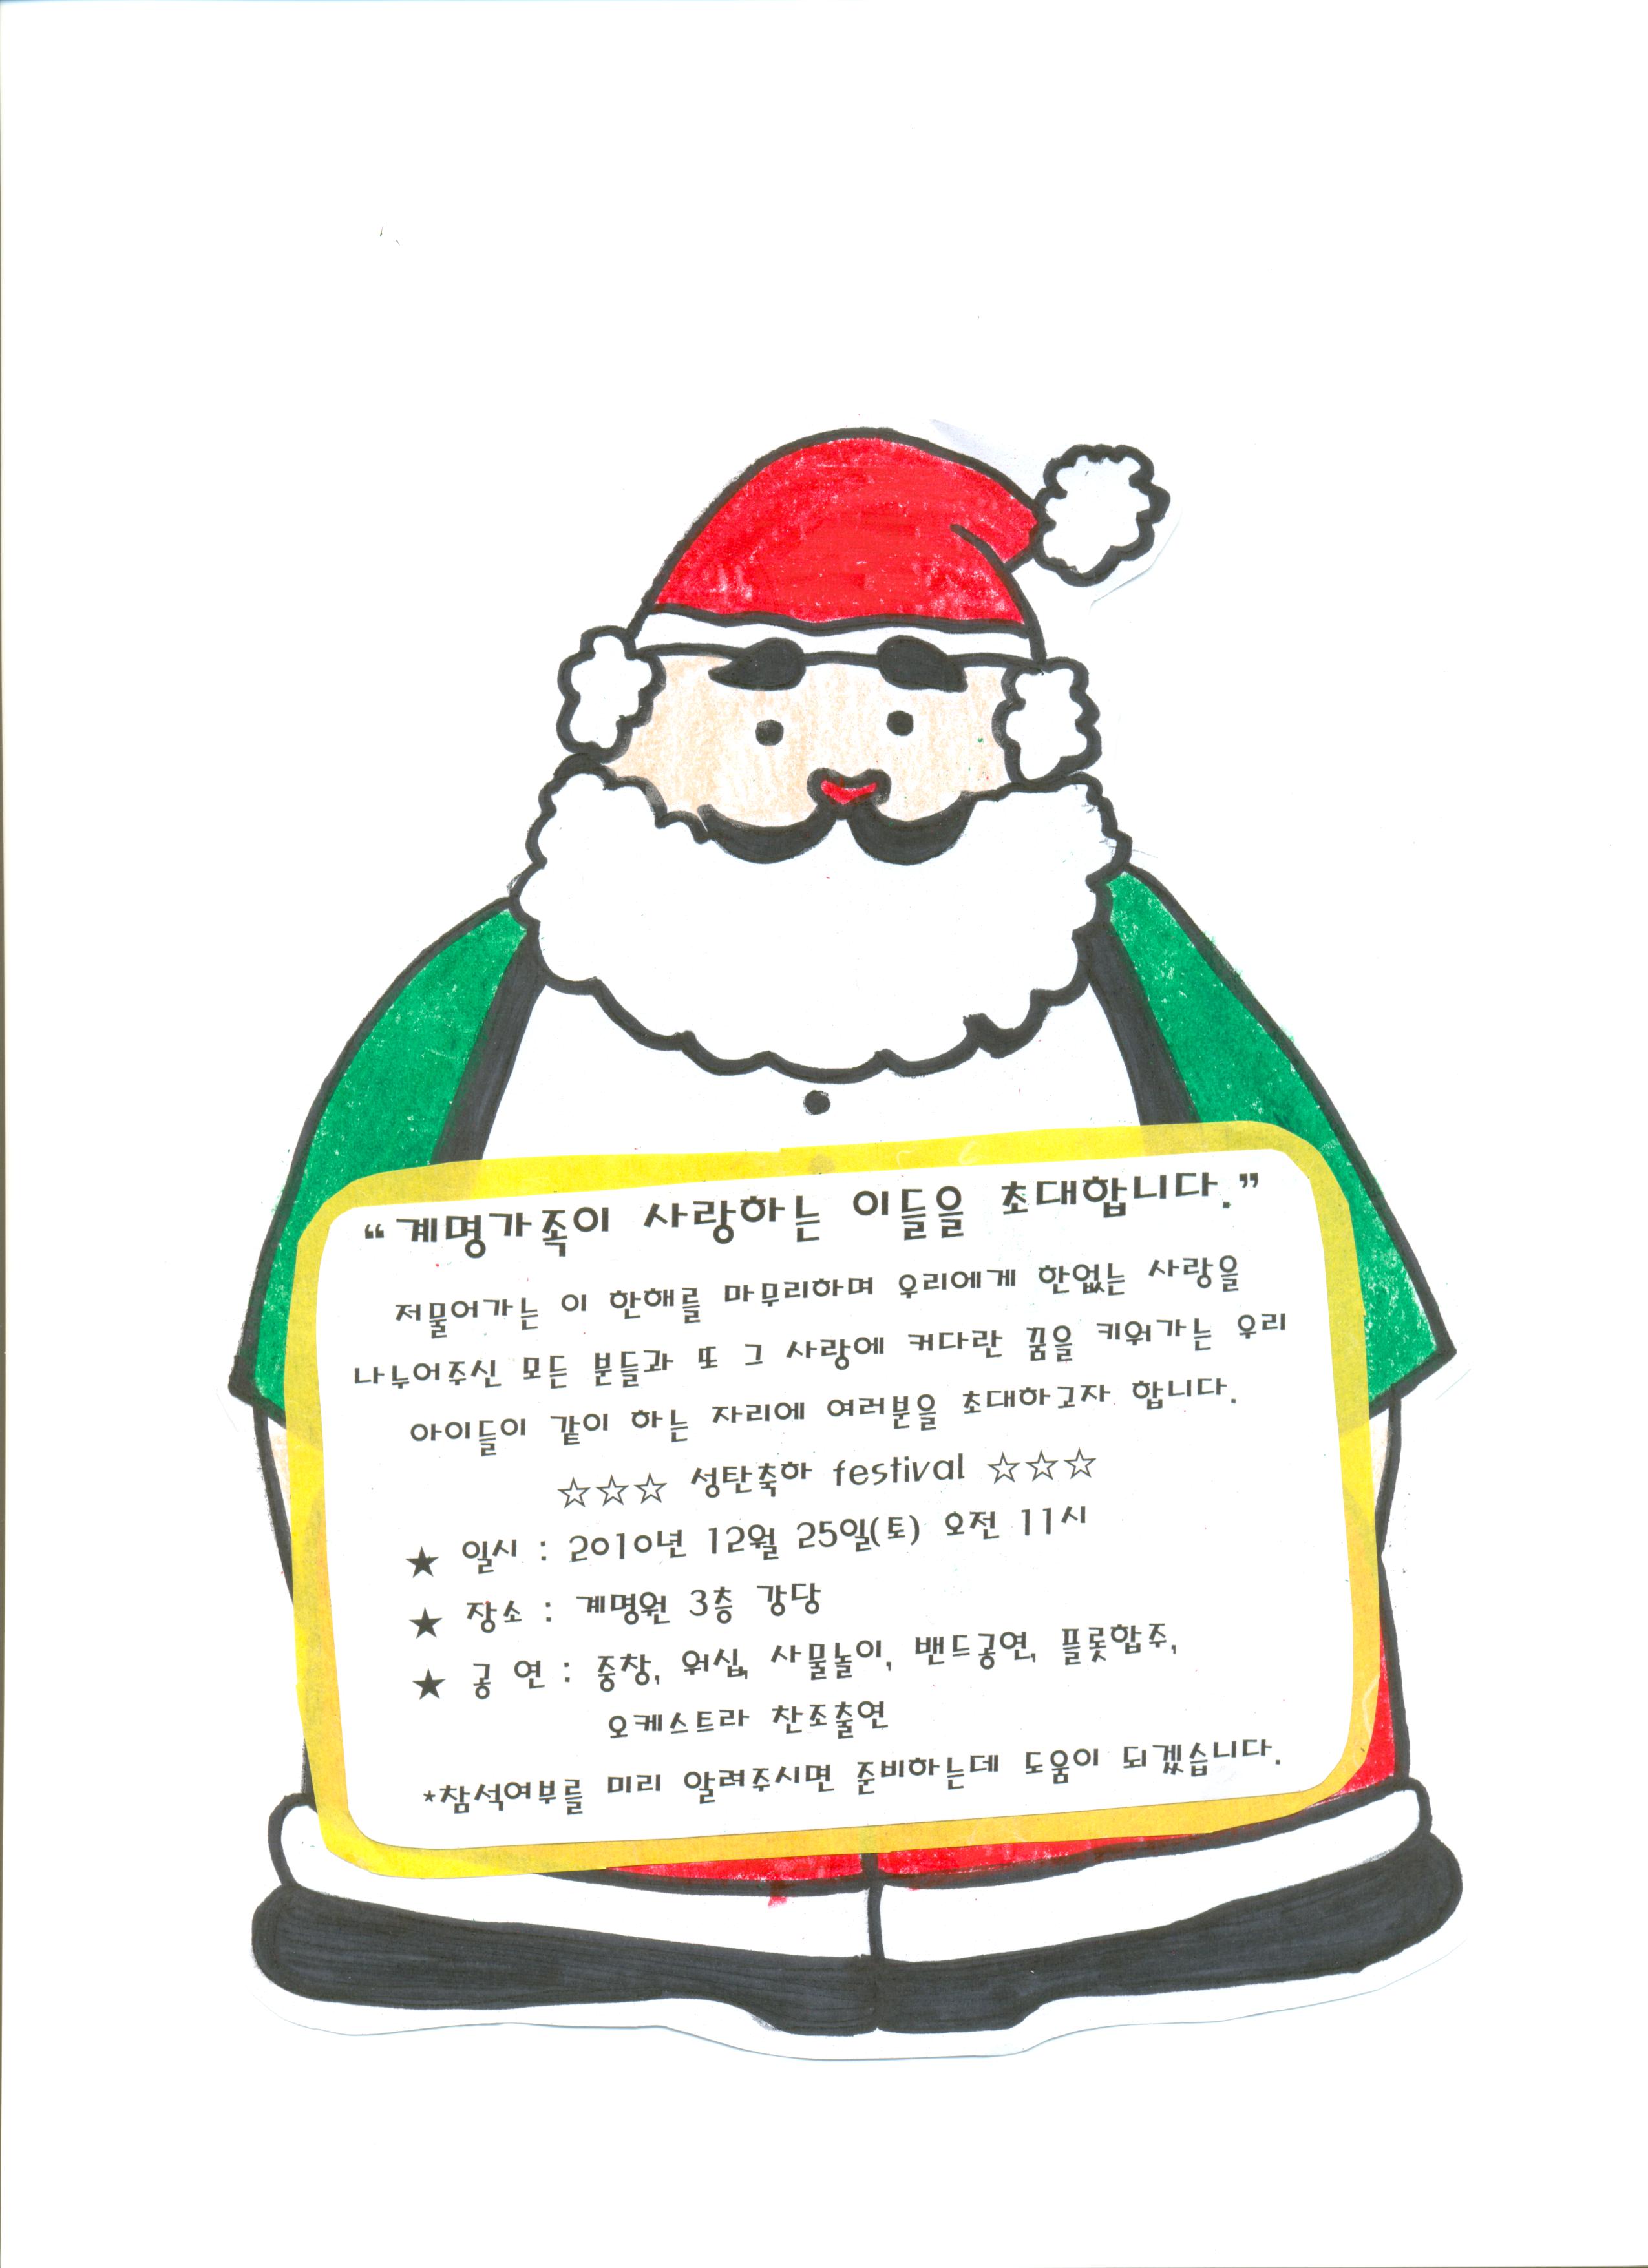 “계명가족이 사랑하는 이들을 초대합니다.”
저물어가는 이 한해를 마무리하며 우리에게 한없는 사랑을
나누어주신 모든 분들과 또 그 사랑에 커다란 꿈을 키워가는 우리
아이들이 같이 하는 자리에 여러분을 초대하고자 합니다.
☆☆☆ 성탄축하 festival ☆☆☆
★ 일시 : 2010년 12월 25일(토) 오전 11시
★ 장소 : 계명원 3층 강당
★ 공 연 : 중창, 워십, 사물놀이, 밴드공연, 플룻합주,
오케스트라 찬조출연
*참석여부를 미리 알려주시면 준비하는데 도움이 되겠습니다.